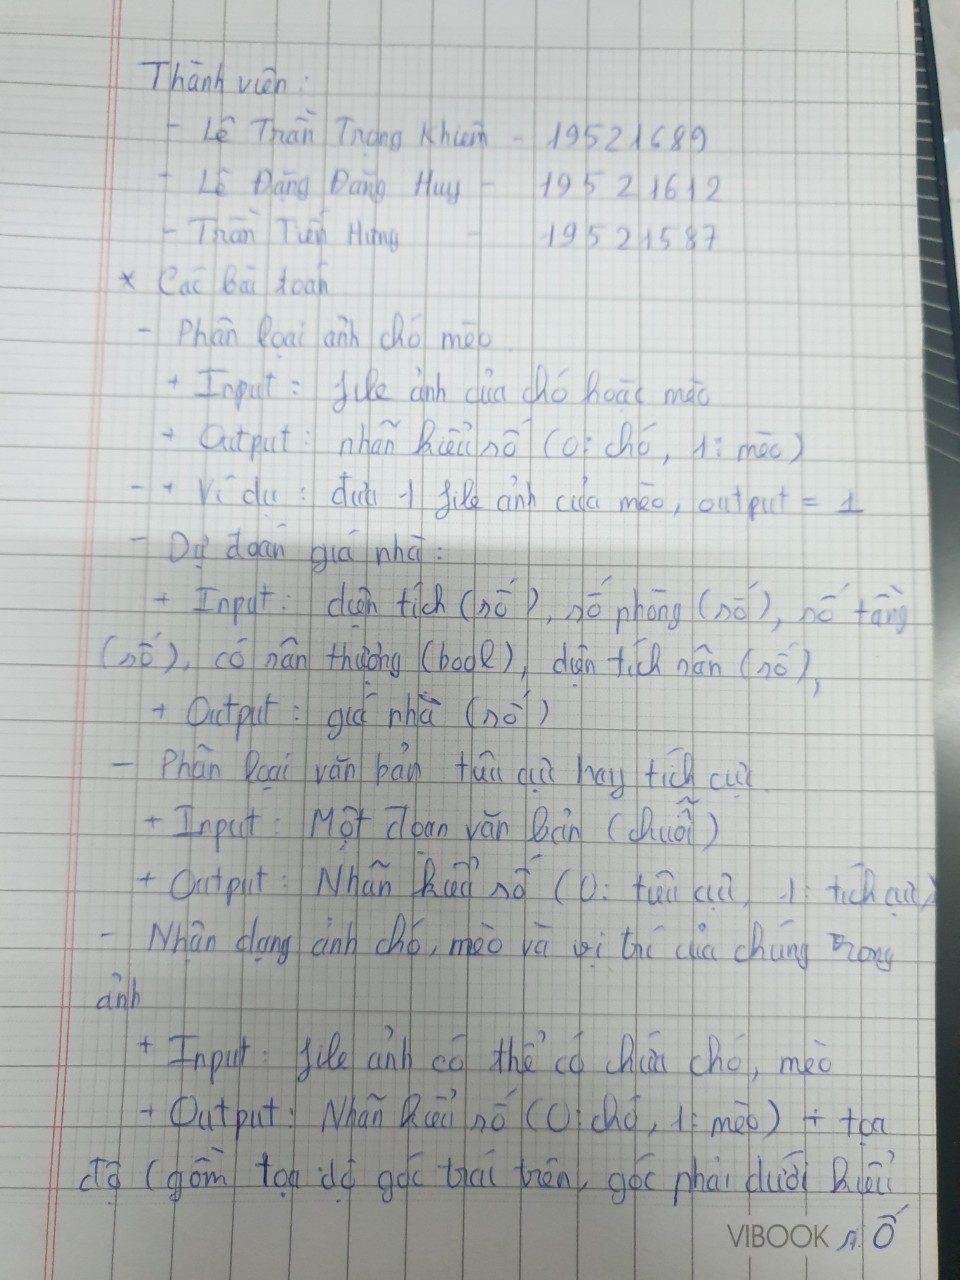 Thành viên :
- Lê Trần Trọng Khiêm - 19521689
- Lê Đặng Đăng Huy - 19521612
- Trần Tiến Hưng - 19521587
* Các bài toán
- Phân loại ảnh chó mèo
+ Input : file ảnh của chó hoặc mèo
+ Output : nhãn kiểu số (0: chó, 1: mèo)
- + Ví dụ : đưa 1 file ảnh của mèo, output = 1
- Dự đoán giá nhà :
+ Input : diện tích (số), số phòng (số), số tầng
(số), có sân thượng (bool), diện tích sân (số),
+ Output : giá nhà (số)
- Phân loại văn bản tiêu cực hay tích cực
+ Input : Một đoạn văn bản (chuỗi)
+ Output : Nhãn kiểu số (0: tiêu cực, 1: tích cực)
- Nhận dạng ảnh chó, mèo và vị trí của chúng trong
ảnh
+ Input : file ảnh có thể có chứa chó, mèo
+ Output : Nhãn kiểu số (0: chó, 1: mèo) + tọa
độ (gồm tọa độ góc trái trên, góc phải dưới kiểu
VIBOOK số